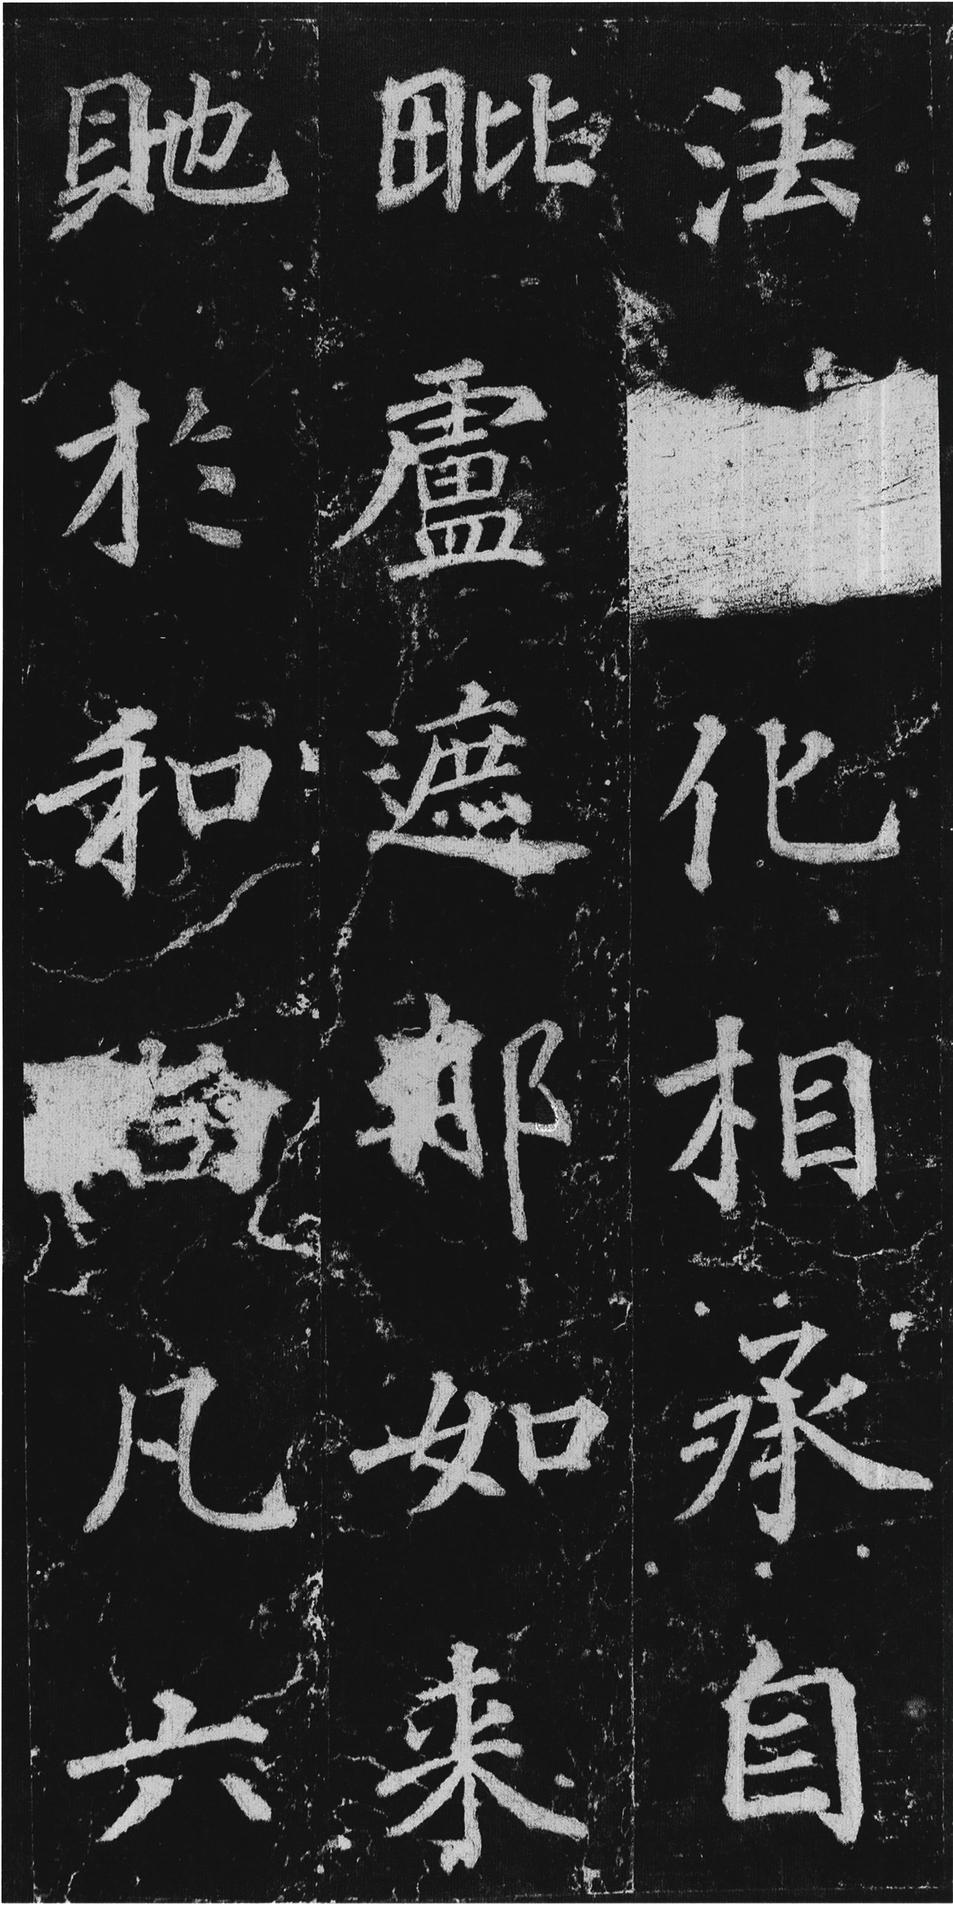 法化相承自
毗盧遮那如来
貤於和凡六